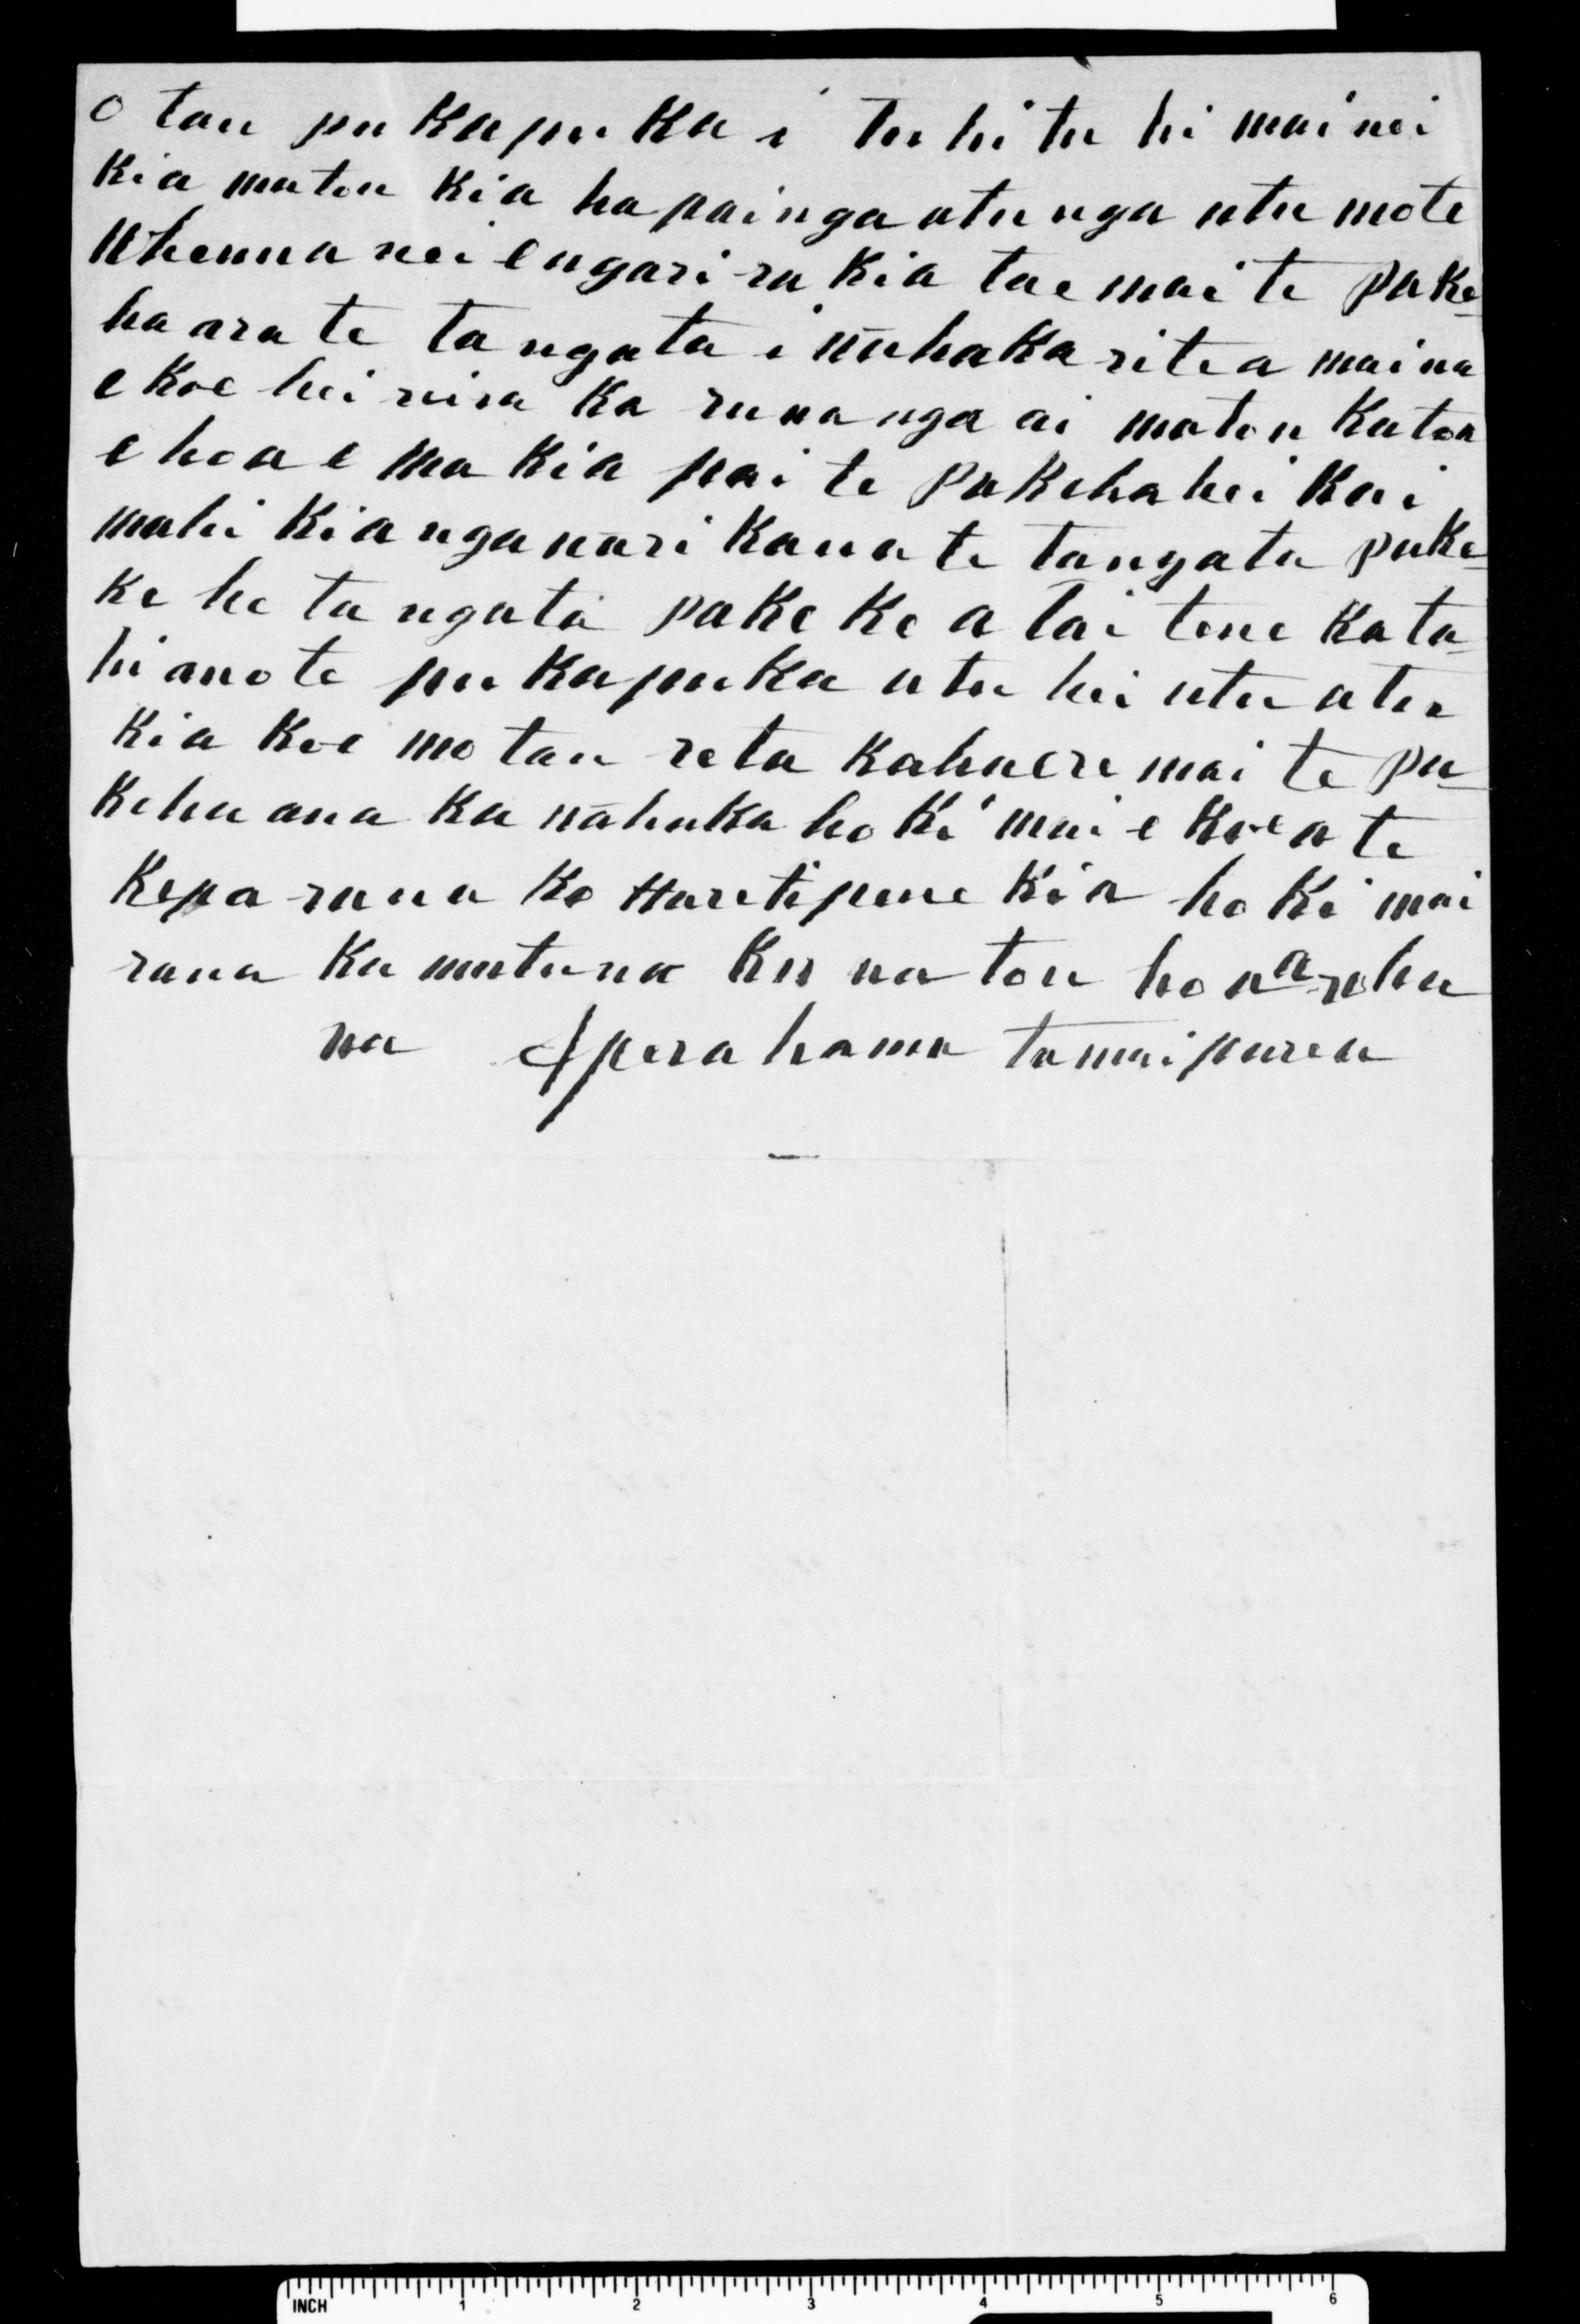 o tau pukapuka i tuhituhi mai nei
kia matou kia hapainga atu nga utu mote
Whenua nei engari ra kia tae mai te pake-
ha ara te tangata i whakaritea maina
e koe hei reira ka runanga ai matou katoa
e hoa e ma kia pai te pakeha hei kai
mahi kia ngawari kaua te tangata pake-
ke he tangata pakeke a tai tene kata-
hi ano te pukapuka atu hei utu atu
kia koe mo tau reta kahaere mai te pa-
keha ana ka whaka hoki mai e koe a te
Kepa raua ko Haretipene kia hoki mai
raua ka mutu na ku na tou hoa aroha
na Aperahama tamaiparea
INCH 1 2 3 4 5 6